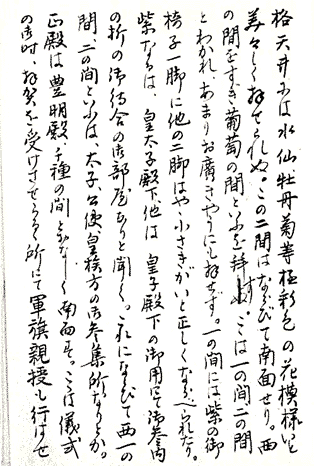 格天井には水仙牡丹菊等極彩色の花模様いと
美々しく拝せられぬ。この二間はならびて南面せり。西
の間をすき葡萄の間といふを拝す。こは一の間二の間
とわかれ、あまりお廣きやうにも拝せず。一の間には紫の御
椅子一脚に他の二脚はやゝ小さきがいと正しくならべられたり。
紫なるは、皇太子殿下他は皇子殿下の御用にて御参内
の折の御待合の御部屋なりと聞く。これにならびて西一の
間二の間といふは、太子、公使皇族方の御参集所なりとか。
正殿は豊明殿、千種の間とおなじく南面す。こは儀式
の御時、拝賀を受けさせらるゝ所にて軍旗親授も行はせ